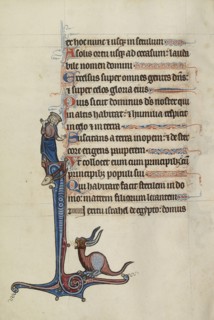 et hoc nunc et usq; in seculum
A solis ortu usq; ad occasum: lauda
bile nomen domini
Excelsus super omnes gentes dns:
et super celos gloria eius
Quis sicut dominus ds noster qui
in altis habitat: et humilia respicit
in celo et in terra
Suscitans a terra inopem: et de ster
core erigens pauperem
Ut collocet eum cum principibus: cum
principibus populi sui
Qui habitare facit sterilem in do
mo: matrem filiorum letantem
In exitu israhel de egypto: domus